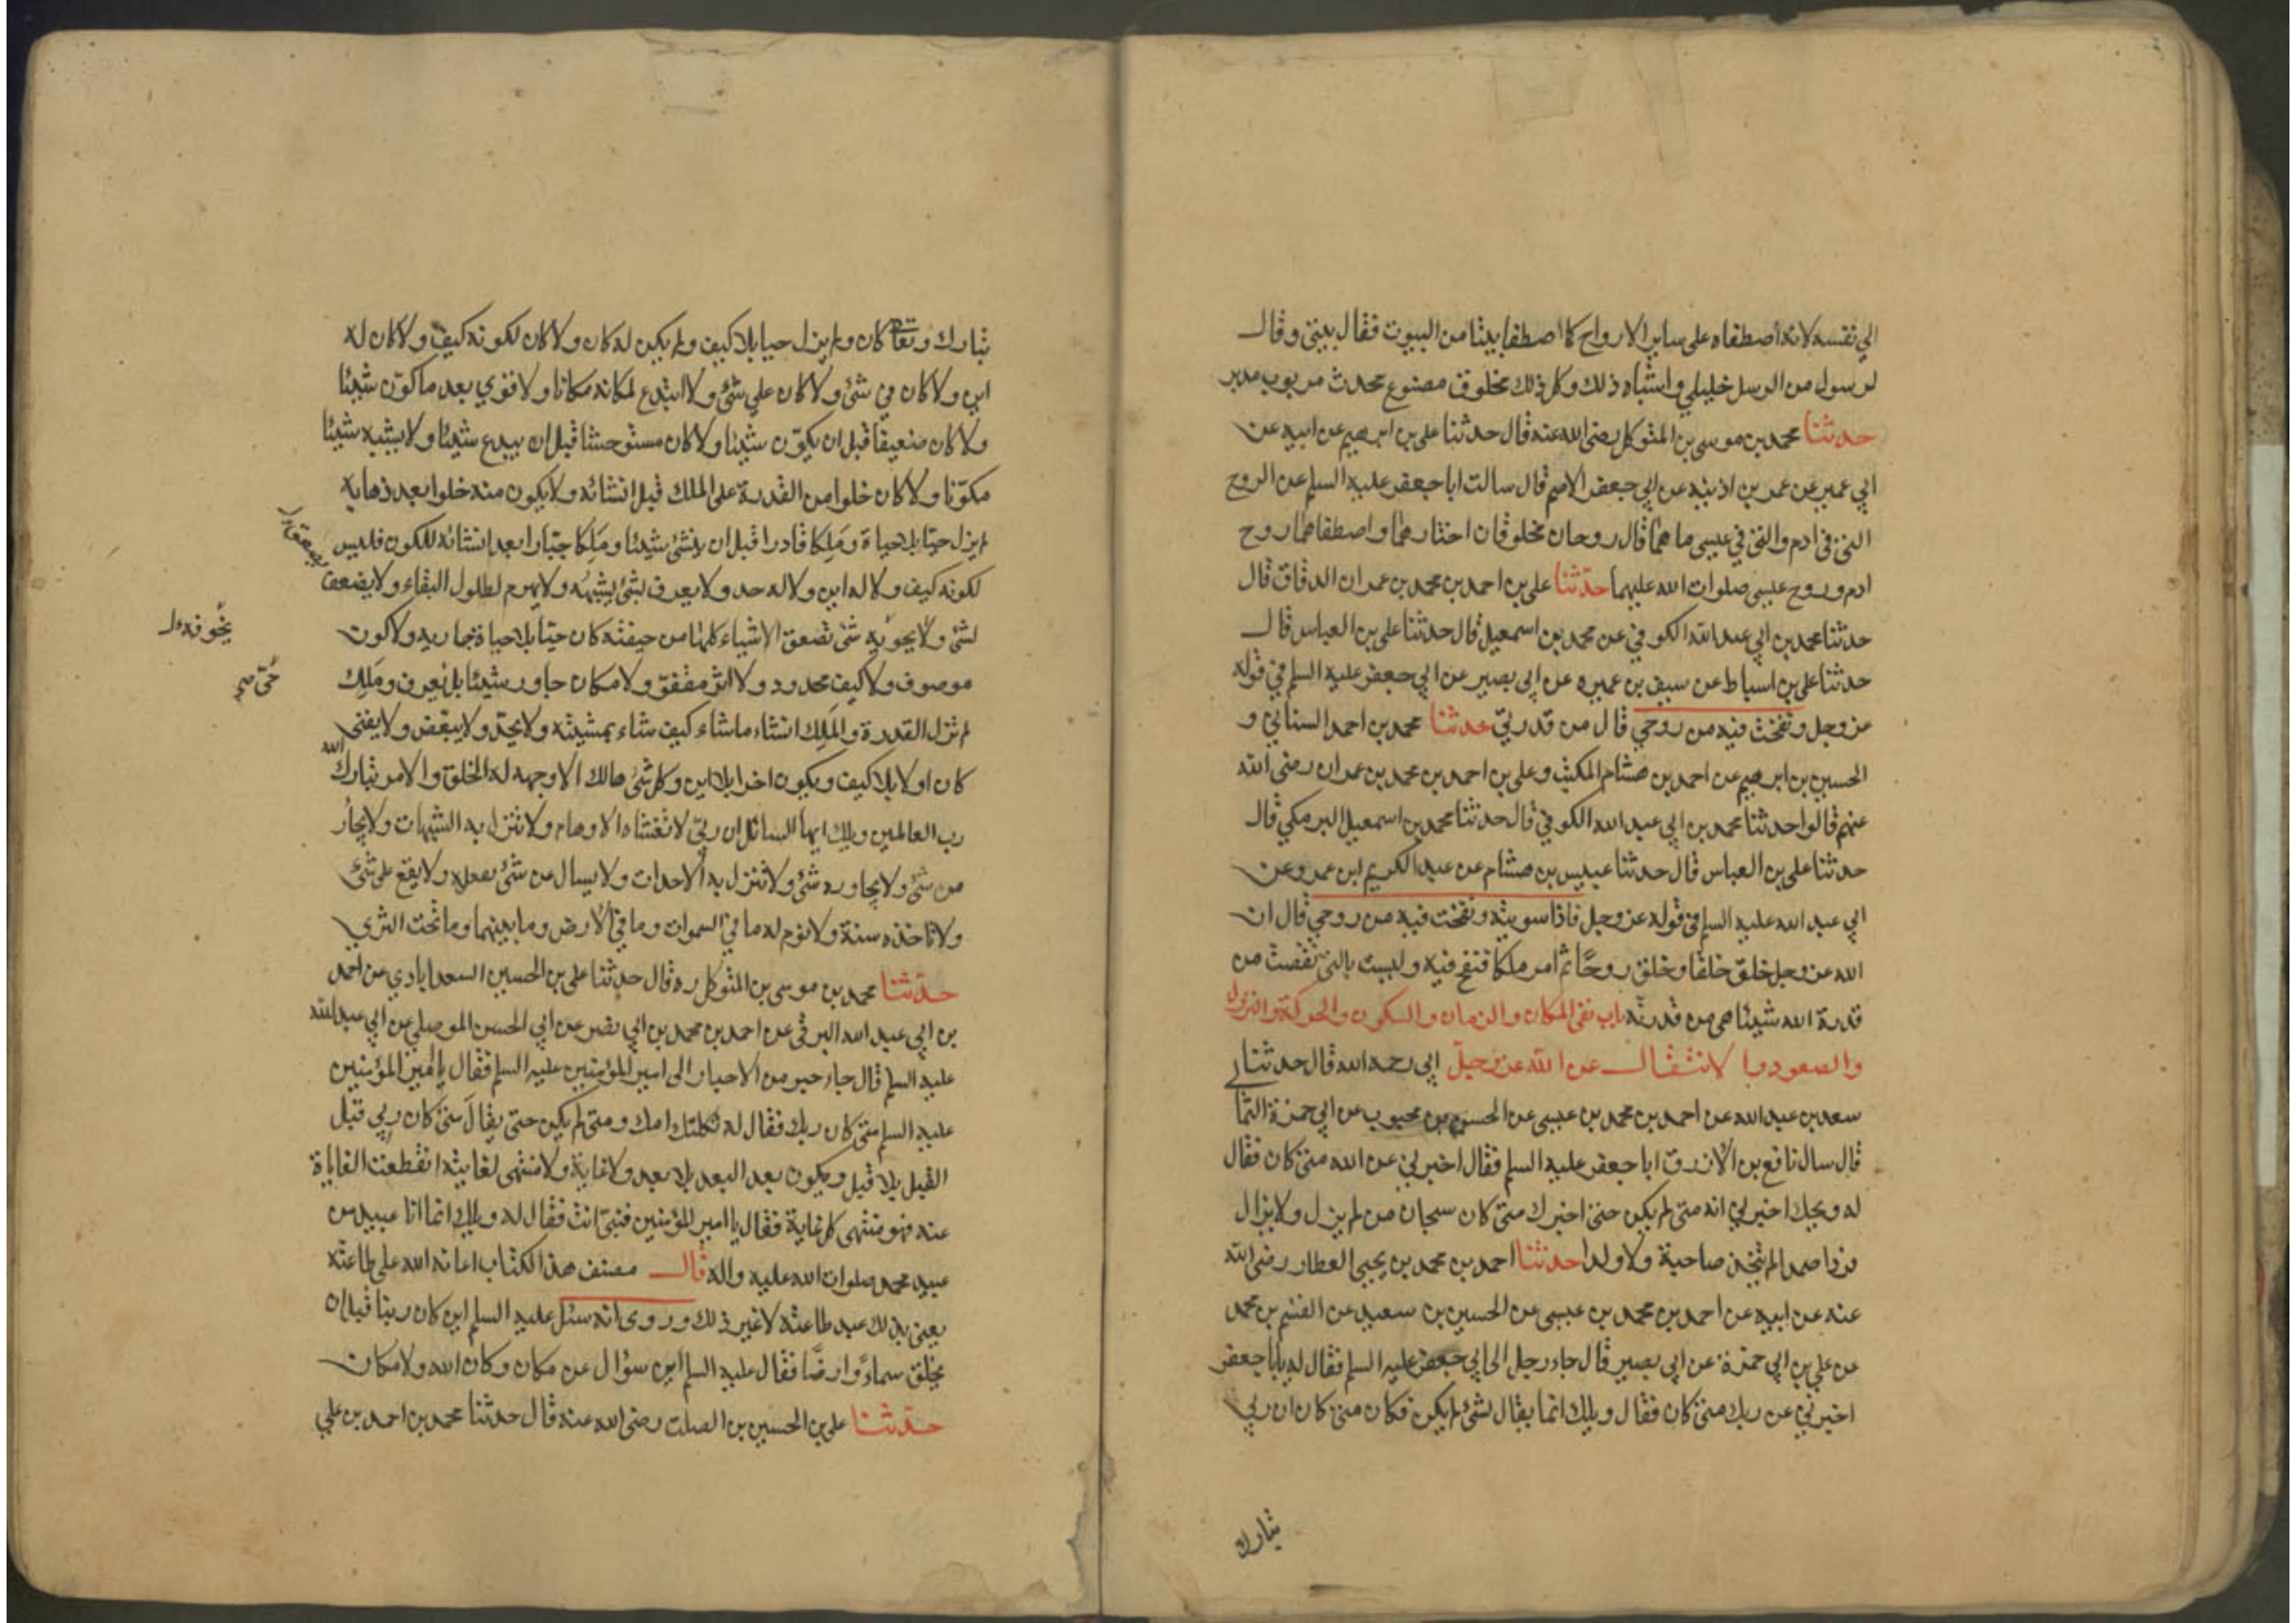 الي نفسه لانه اصطفاه علي ساير الارواح كما اصطفا بيتا من البيوت فقال بيتي وقال
لرسول من الرسل خليلي واشباه ذلك وكل ذلك مخلوق مصنوع محدث مربوب مدبر
حدثنا محمد بن موسى بن المتوكل رضي الله عنه قال حدثنا علي بن ابرهيم عن ابيه عن
ابي عمير عن عمر بن اذينه عن ابي جعفر الاصم قال سالت ابا جعفر عليه السلم عن الروح
التي في ادم والتي في عيسى ما هما قال روحان مخلوقان اختارهما واصطفاهما روح
ادم وروح عيسى صلوات الله عليهما حدثنا علي بن احمد بن محمد بن عمران الدقاق قال
حدثنا محمد بن ابي عبد الله الكوفي عن محمد بن اسمعيل قال حدثنا علي بن العباس قال
حدثنا علي بن اسباط عن سيف بن عميره عن ابي بصير عن ابي جعفر عليه السلم في قوله
عز وجل ونفخت فيه من روحي قال من قدرتي حدثنا محمد بن احمد السناني و
الحسين بن ابرهيم عن احمد بن هشام المكتب وعلي بن احمد بن محمد بن عمران رضي الله
عنهم قالوا حدثنا محمد بن ابي عبد الله الكوفي قال حدثنا محمد بن اسمعيل البرمكي قال
حدثنا علي بن العباس قال حدثنا عبيس بن هشام عن عبد الكريم ابن عمرو عن
ابي عبد الله عليه السلم في قوله عز وجل فاذا سويته ونفخت فيه من روحي قال ان
الله عز وجل خلق خلقا وخلق روحا ثم امر ملكا فنفخ فيه وليست بالتي نقصت من
قدرة الله شيئا هي من قدرته باب نفي المكان والزمان والسكون والحركة والنزول
والصعود والانتقال عن الله عز وجل ابي رحمه الله قال حدثنا
سعد بن عبد الله عن احمد بن محمد بن عيسى عن الحسن بن محبوب عن ابي حمزة الثما
قال سال نافع بن الازرق ابا جعفر عليه السلم فقال اخبرني عن الله متى كان فقال
له ويحك اخبرني انه متى لم يكن حتى اخبرك متى كان سبحان من لم يزل ولا يزال
فردا صمدا لم يتخذ صاحبة ولا ولدا حدثنا احمد بن محمد بن يحيى العطار رضي الله
عنه عن ابيه عن احمد بن محمد بن عيسى عن الحسين بن سعيد عن القسم بن محمد
عن علي بن ابي حمزة عن ابي بصير قال جاء رجل الى ابي جعفر عليه السلم فقال له يا ابا جعفر
اخبرني عن ربك متى كان فقال ويلك انما يقال لشئ لم يكن فكان متى كان ان ربي
تبارك
تبارك وتعا كان ولم يزل حيا بلا كيف ولم يكن له كان ولا كان لكونه كيف ولا كان له
اين ولا كان في شئ ولا كان علي شئ ولا ابتدع لمكانه مكانا ولا قوي بعد ما كوّن شيئا
ولا كان ضعيفا قبل ان يكوّن شيئا ولا كان مستوحشا قبل ان يبدع شيئا ولا يشبه شيئا
مكوّنا ولا كان خلوا من القدرة على الملك قبل انشائه ولا يكون منه خلوا بعد ذهابه
لم يزل حيّا بلا حياة ومَلِكا قادرا قبل ان ينشئ شيئا ومَلِكا جبّارا بعد انشائه للكون فليس
لكونه كيف ولا له اين ولا له حد ولا يعرف بشئ يشبهه ولا يهرم لطول البقاء ولا يضعف
لشئ ولا يحويه شئ تصعق الاشياء كلها من خيفته كان حيّا بلا حياة جاريه ولا كون
موصوف ولا كيف محدود ولا اثر مقفو ولا مكان جاور شيئا بل يُعرف ومَلِك
لم تزل القدرة والمَلِك انشاء ما شاء كيف شاء بمشيته ولا يحدّ ولا يبعّض ولا يفنى
كان اولا بلا كيف ويكون اخرا بلا اين وكل شئ هالك الا وجهه له الخلق والامر تبارك الله
رب العالمين ويلك ايها السائل ان ربي لا تغشاه الاوهام ولا تنزل به الشبهات ولا يجار
من شئ ولا يجاوره شئ ولا تنزل به الاحداث ولا يسال عن شئ يفعله ولا يقع على شئ
ولا تاخذه سنة ولا نوم له ما في السموات وما في الارض وما بينهما وما تحت الثري
حدثنا محمد بن موسى بن المتوكل ره قال حدثنا علي بن الحسين السعدابادي عن احمد
بن ابي عبد الله البرقي عن احمد بن محمد بن ابي نصر عن ابي الحسن الموصلي عن ابي عبد الله
عليه السلم قال جاء حبر من الاحبار الى امير المؤمنين عليه السلم فقال يا امير المؤمنين
عليه السلم متى كان ربك فقال له ثكلتك امك ومتى لم يكن حتى يقال متى كان ربي قبل
القبل بلا قبل ويكون بعد البعد بلا بعد ولا غاية ولا منتهى لغايته انقطعت الغاياة
عنه فهو منتهى كل غاية فقال يا امير المؤمنين فنبيّ انت فقال له ويلك انما انا عبد من
عبيد محمد صلوات الله عليه واله قال مصنف هذا الكتاب اعانه الله علي طاعته
يعني بذلك عبد طاعته لا غير ذلك وروى انه سئل عليه السلم اين كان ربنا قبل ان
يخلق سماءً وارضًا فقال عليه السلم اين سؤال عن مكان وكان الله ولا مكان
حدثنا علي بن الحسين بن الصلت رضي الله عنه قال حدثنا محمد بن احمد بن علي